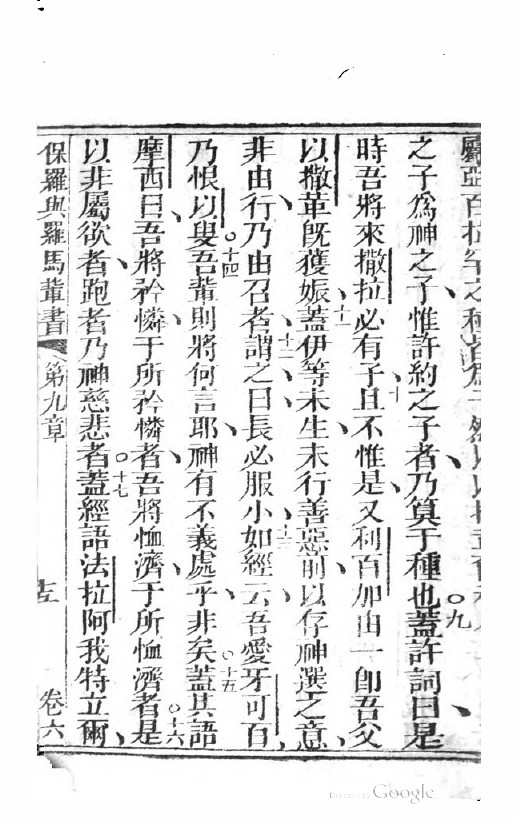 屬亞百拉罕之種皆為子然以以撒
之子為神之子惟許約之子者乃算于種也○九蓋許詞曰是
時吾將來撒拉必有子十且不惟是又利百加由一卽吾父
以撒革既獲娠十一蓋伊等未生未行善惡前以存神選之意
非由行乃由召者十二謂之曰長必服小十三如經云吾愛牙可百
乃恨以叟○十四吾輩則將何言耶神有不義處乎非矣○十五蓋其語
摩西曰吾將矜憐于所矜憐者吾將恤濟于所恤濟者○十六是
以非屬欲者跑者乃神慈悲者○十七蓋經語法拉阿我特立爾
保羅與羅馬輩書 第九章 卷六